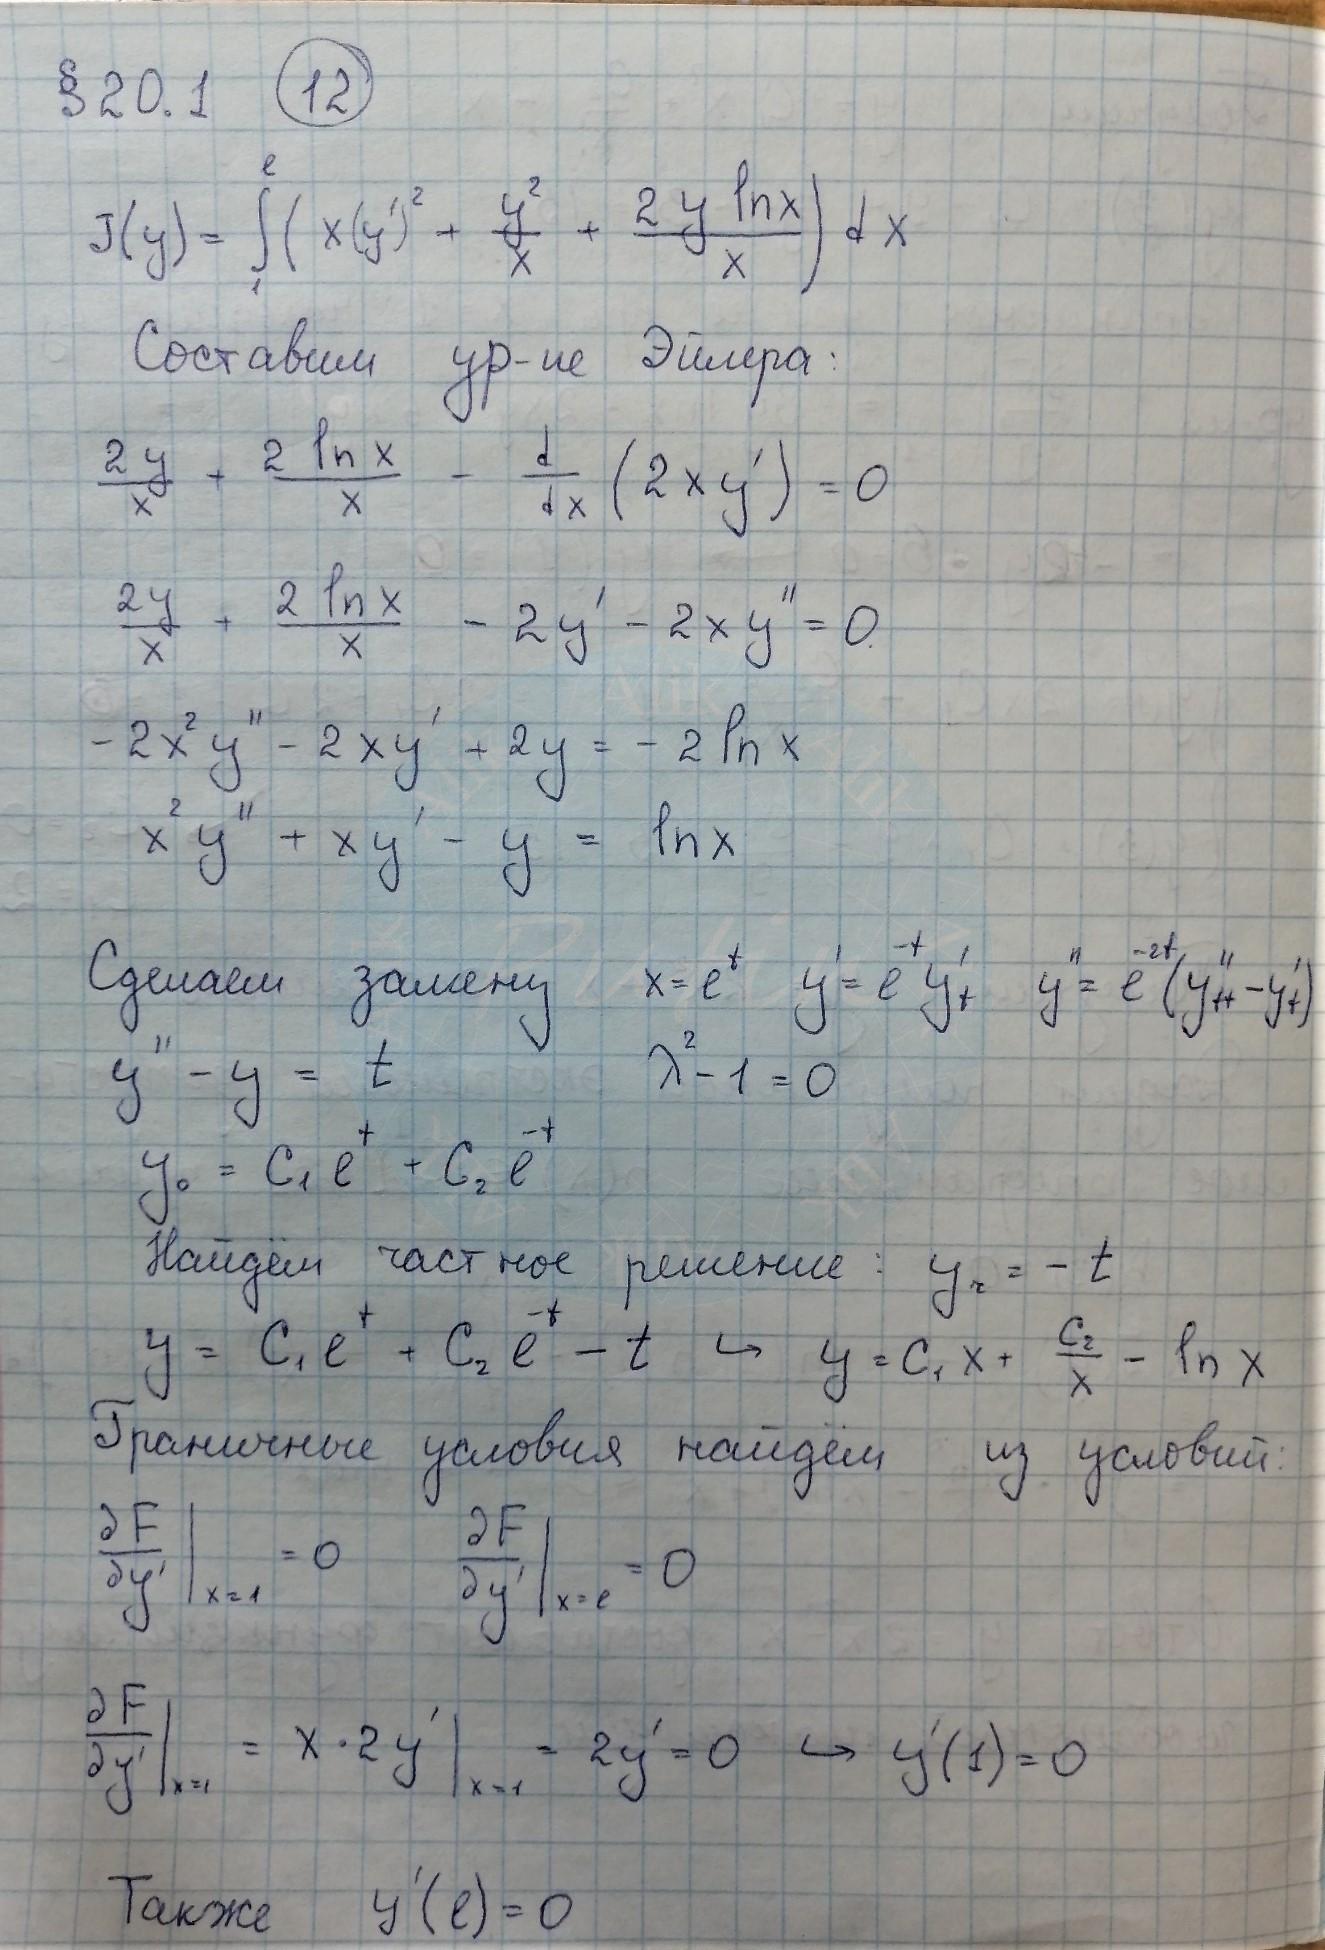 §20.1 (12)
J(y) = ∫₁ᵉ ( x(y')² + y²/x + 2y ln x / x ) dx
Составим ур-ие Эйлера:
2y/x + 2 ln x / x - d/dx (2xy') = 0
2y/x + 2 ln x / x - 2y' - 2xy'' = 0.
-2x²y'' - 2xy' + 2y = -2 ln x
x²y'' + xy' - y = ln x
Сделаем замену x = eᵗ y' = e⁻ᵗ y'ₜ y'' = e⁻²ᵗ (y''ₜₜ - y'ₜ)
y'' - y = t λ² - 1 = 0
y₀ = C₁eᵗ + C₂e⁻ᵗ
Найдём частное решение: yч = -t
y = C₁eᵗ + C₂e⁻ᵗ - t ↪ y = C₁x + C₂/x - ln x
Граничные условия найдём из условий:
∂F/∂y' |ₓ₌₁ = 0 ∂F/∂y' |ₓ₌ₑ = 0
∂F/∂y' |ₓ₌₁ = x · 2y' |ₓ₌₁ = 2y' = 0 ↪ y'(1) = 0
Также y'(e) = 0